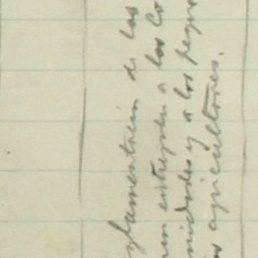 glamentación de las
ran entregar a los Co
midades y a los pequ
os agricultores.